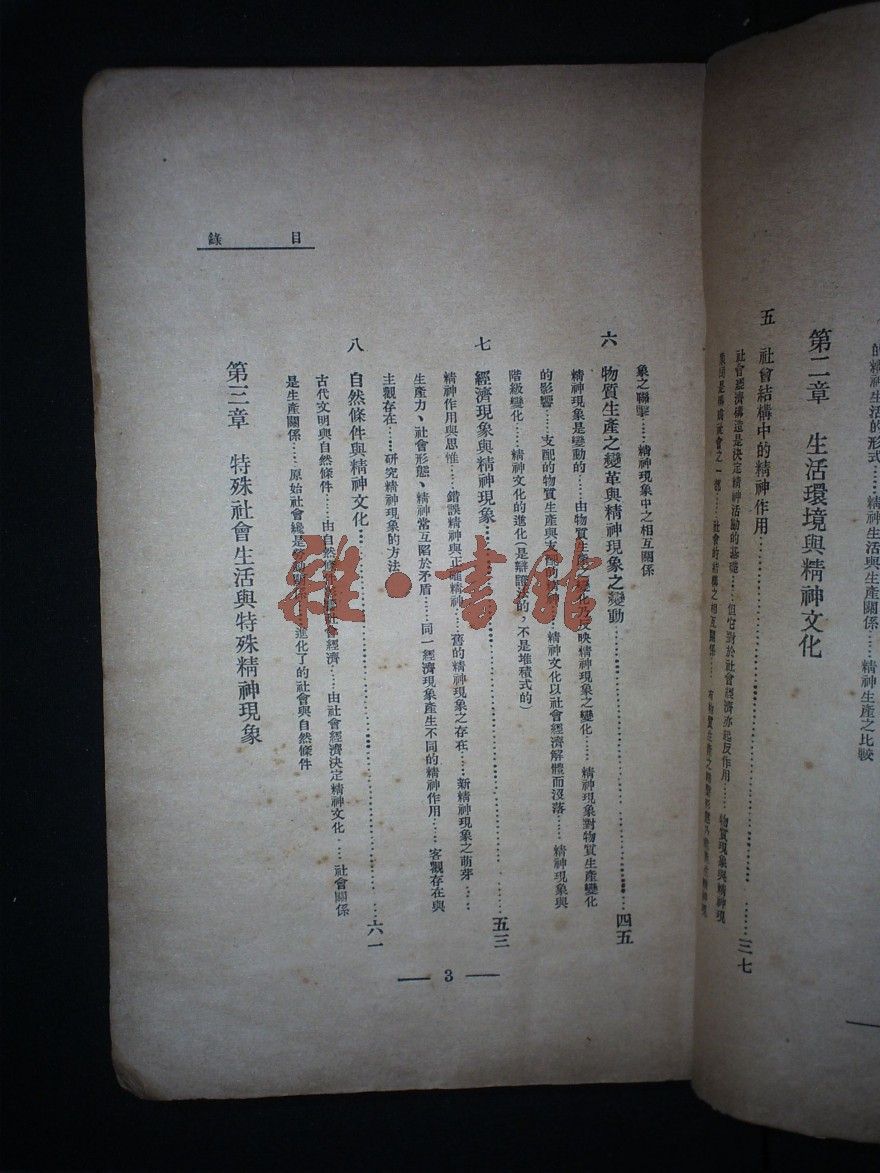 的精神生活的形式……精神生活與生產關係……精神生產之比較
第二章 生活環境與精神文化
五 社會結構中的精神作用……三七
社會經濟構造是決定精神活動的基礎……但它對於社會經濟亦起反作用……物質現象與精神現
集團是構成社會之一部……社會的結構之相互關係……
象之聯繫……精神現象中之相互關係
六 物質生產之變革與精神現象之變動……四五
精神現象是變動的……由物質生產之變化乃反映精神現象之變化……精神現象對物質生產變化
的影響……支配的物質生產與支配的精神……精神文化以社會經濟解體而沒落……精神現象與
階級變化……精神文化的進化(是辯證的,不是堆積式的)
七 經濟現象與精神現象……五三
精神作用與思惟……錯誤精神與正確精神……舊的精神現象之存在……新精神現象之萌芽……
生產力、社會形態、精神常互陷於矛盾……同一經濟現象產生不同的精神作用……客觀存在與
主觀存在……研究精神現象的方法
八 自然條件與精神文化……六一
古代文明與自然條件……由自然條件社會經濟……由社會經濟決定精神文化……社會關係
是生產關係……原始社會纔是……進化了的社會與自然條件
第三章 特殊社會生活與特殊精神現象
目錄
3
雜·書館